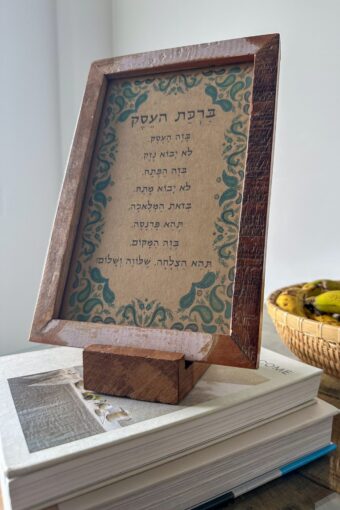 ברכת העסק
בזה העסק
לא יבוא נזק,
בזה הפתח,
לא יבוא מתח,
בזאת המלאכה,
תהא פרנסה,
בזה המקום,
תהא הצלחה, שלווה ושלום!
OME